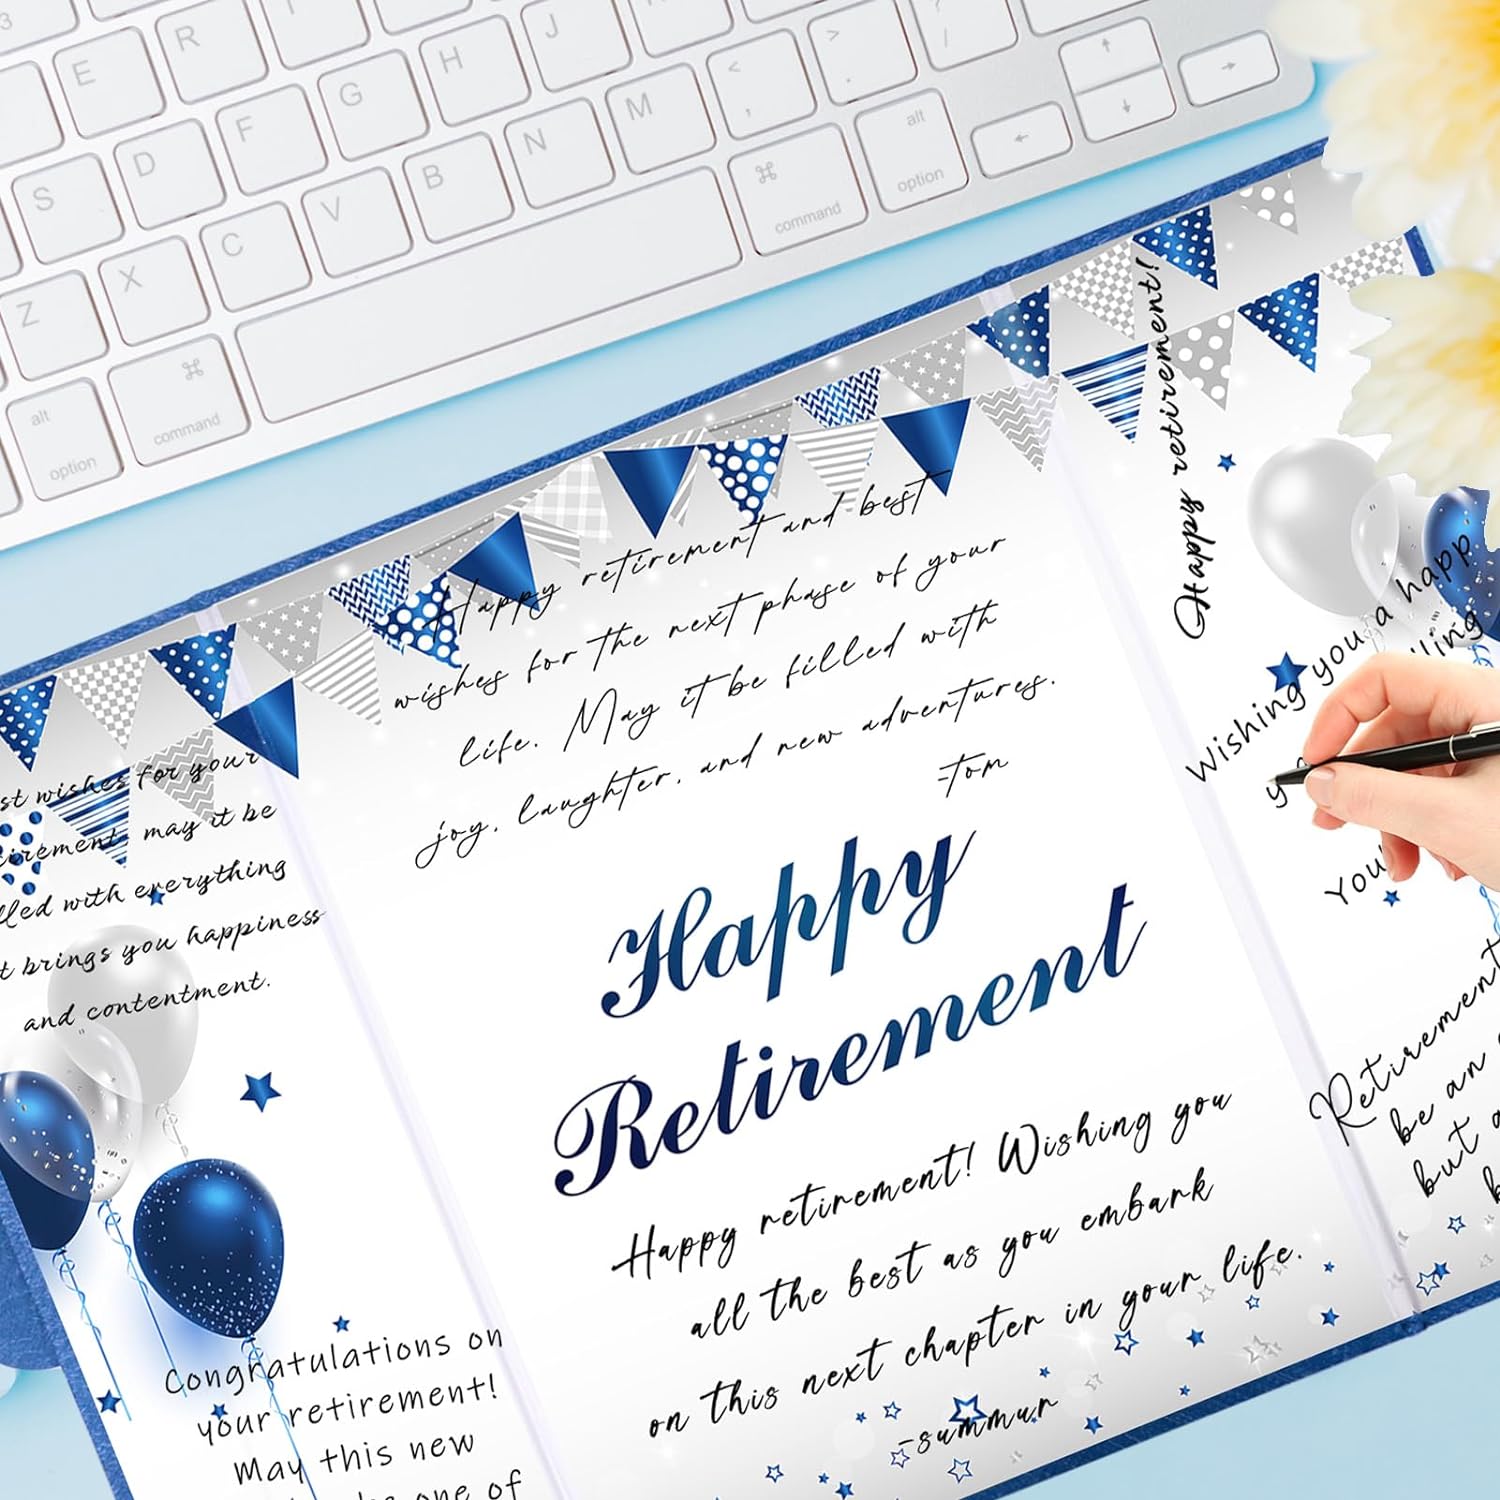 3
E
R
T
S
D
F
G
H
J
Z
X
C
V
B
N
M
<
,
>
.
?
/
alt
option
⌘
command
⌘
command
alt
option
st wishes for your
irement, may it be
lled with everything
t brings you happiness
and contentment.
Congratulations on
your retirement!
May this new
one of
Happy retirement and best
wishes for the next phase of your
life. May it be filled with
joy, laughter, and new adventures.
-Tom
Happy
Retirement
Happy retirement! Wishing you
all the best as you embark
on this next chapter in your life.
-summur
Happy retirement!
Wishing you a happ
lling
y
You'
Retirement
be an
but a